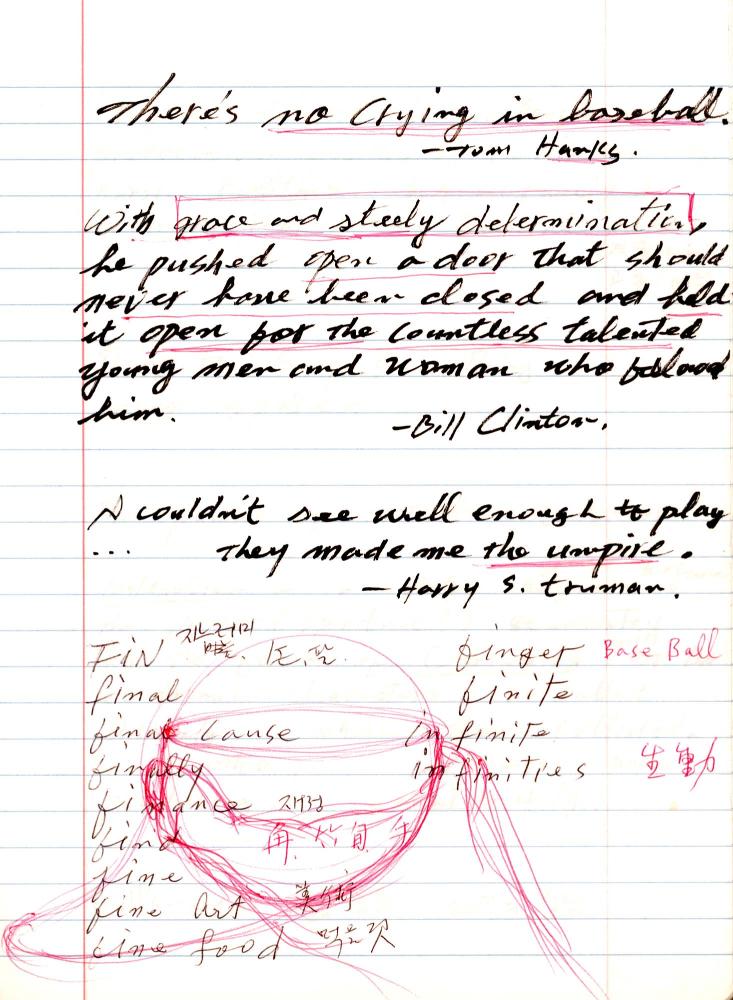 There's no Crying in baseball.
-Tom Hanks.
With grace and steely determination,
he pushed open a door that should
never have been closed and held
it open for the countless talented
young men and woman who
him.
-Bill Clinton.
I couldn't see well enough to play
... They made me the umpire.
-Harry S. truman.
FiN 지느러미
final
final cause
finally
finance 재정
find
fine
fine Art 美術
fine food 먹을것
finger Base Ball
finite
infinite
infinities 生動